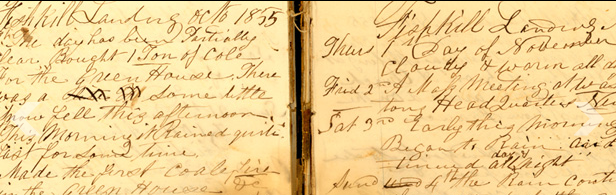 Fishkill Landing Oct 1855
The day has been Partially
Clear. Bought 1 Ton of Cole
for the Green House. There
was a some little
snow fell this afternoon
This Morning it Rained quite
fast for some time
Made the first Coale fire
in the Green House
Fishkill Landing
Thurs 1st Day of November
Cloudy & warm all d
Frid 2nd A Mass Meeting at
tons Head Quarters
Sat 3rd Early this Morning
Began to Rain and
tinued all day night
Sund 4th the Rain Cont